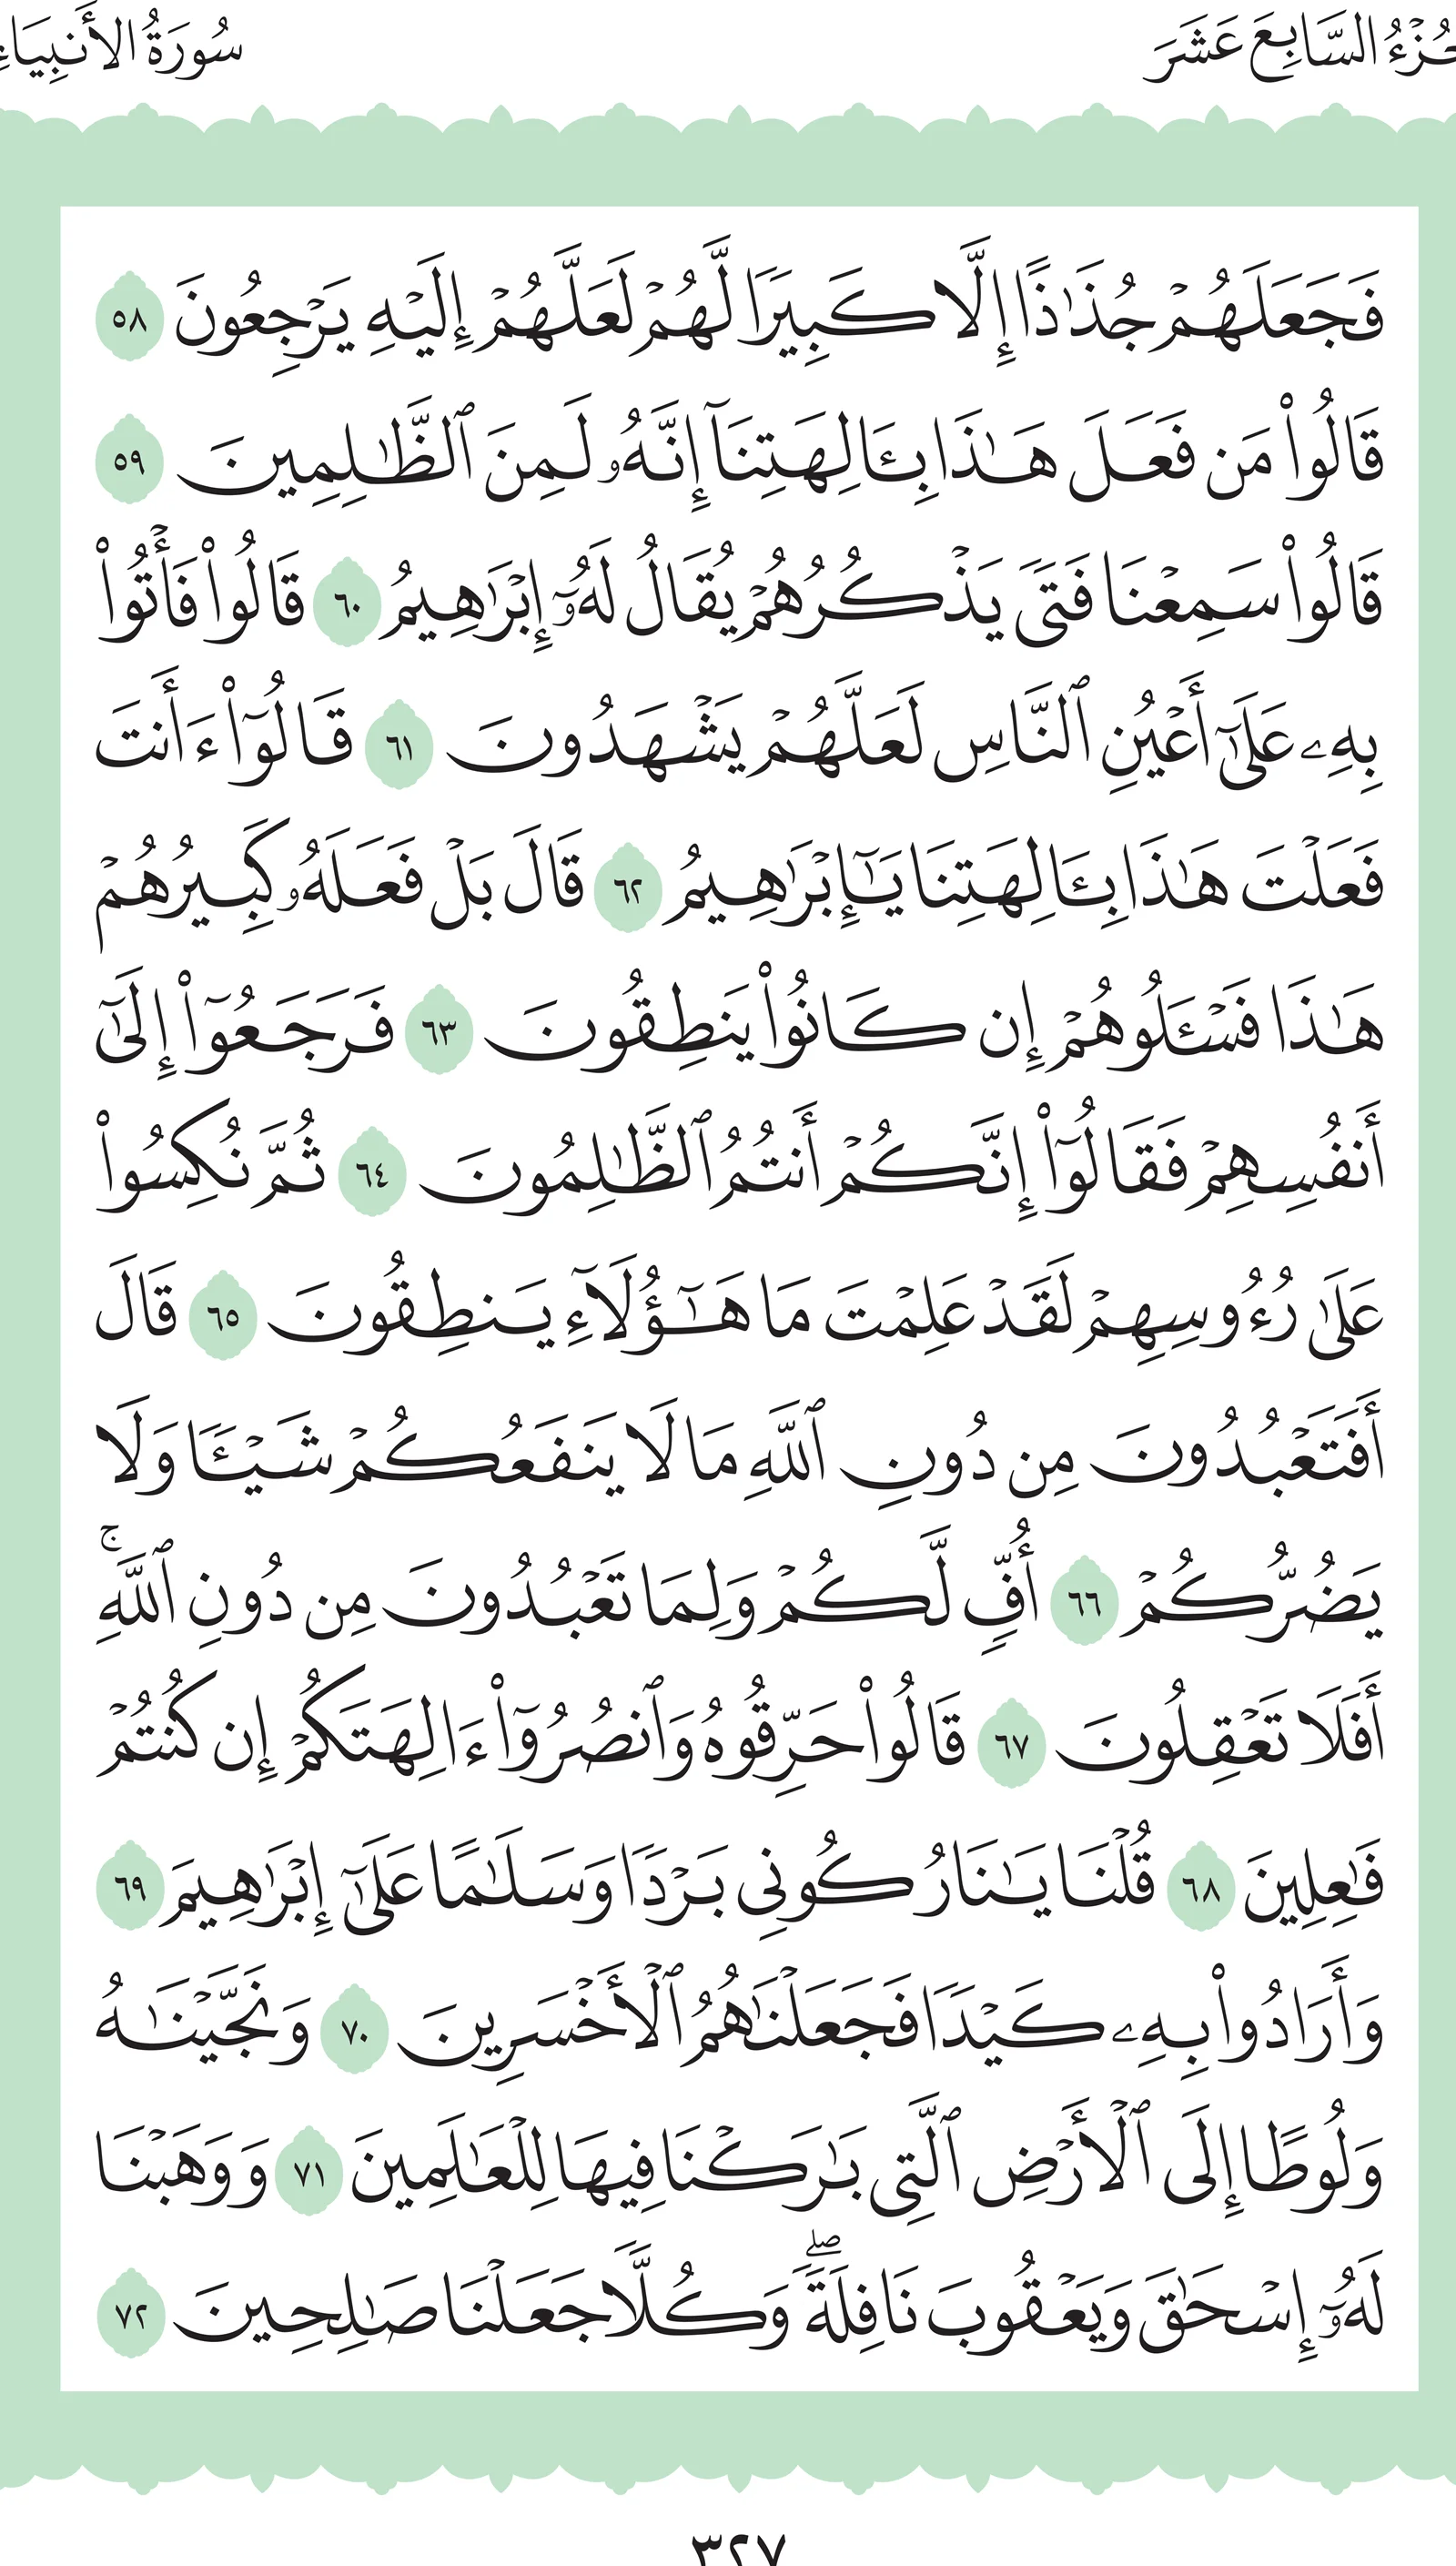 سُورَةُ الأَنبِيَاءِ
جُزْءُ السَّابِعَ عَشَرَ
فَجَعَلَهُمْ جُذَٰذًا إِلَّا كَبِيرًا لَّهُمْ لَعَلَّهُمْ إِلَيْهِ يَرْجِعُونَ ٥٨
قَالُوا۟ مَن فَعَلَ هَٰذَا بِـَٔالِهَتِنَآ إِنَّهُۥ لَمِنَ ٱلظَّٰلِمِينَ ٥٩
قَالُوا۟ سَمِعْنَا فَتًى يَذْكُرُهُمْ يُقَالُ لَهُۥٓ إِبْرَٰهِيمُ ٦٠ قَالُوا۟ فَأْتُوا۟
بِهِۦ عَلَىٰٓ أَعْيُنِ ٱلنَّاسِ لَعَلَّهُمْ يَشْهَدُونَ ٦١ قَالُوٓا۟ ءَأَنتَ
فَعَلْتَ هَٰذَا بِـَٔالِهَتِنَا يَـٰٓإِبْرَٰهِيمُ ٦٢ قَالَ بَلْ فَعَلَهُۥ كَبِيرُهُمْ
هَٰذَا فَسْـَٔلُوهُمْ إِن كَانُوا۟ يَنطِقُونَ ٦٣ فَرَجَعُوٓا۟ إِلَىٰٓ
أَنفُسِهِمْ فَقَالُوٓا۟ إِنَّكُمْ أَنتُمُ ٱلظَّٰلِمُونَ ٦٤ ثُمَّ نُكِسُوا۟
عَلَىٰ رُءُوسِهِمْ لَقَدْ عَلِمْتَ مَا هَـٰٓؤُلَآءِ يَنطِقُونَ ٦٥ قَالَ
أَفَتَعْبُدُونَ مِن دُونِ ٱللَّهِ مَا لَا يَنفَعُكُمْ شَيْـًٔا وَلَا
يَضُرُّكُمْ ٦٦ أُفٍّ لَّكُمْ وَلِمَا تَعْبُدُونَ مِن دُونِ ٱللَّهِ ۚ
أَفَلَا تَعْقِلُونَ ٦٧ قَالُوا۟ حَرِّقُوهُ وَٱنصُرُوٓا۟ ءَالِهَتَكُمْ إِن كُنتُمْ
فَٰعِلِينَ ٦٨ قُلْنَا يَٰنَارُ كُونِى بَرْدًا وَسَلَٰمًا عَلَىٰٓ إِبْرَٰهِيمَ ٦٩
وَأَرَادُوا۟ بِهِۦ كَيْدًا فَجَعَلْنَٰهُمُ ٱلْأَخْسَرِينَ ٧٠ وَنَجَّيْنَٰهُ
وَلُوطًا إِلَى ٱلْأَرْضِ ٱلَّتِى بَٰرَكْنَا فِيهَا لِلْعَٰلَمِينَ ٧١ وَوَهَبْنَا
لَهُۥٓ إِسْحَٰقَ وَيَعْقُوبَ نَافِلَةً ۖ وَكُلًّا جَعَلْنَا صَٰلِحِينَ ٧٢
٣٢٧